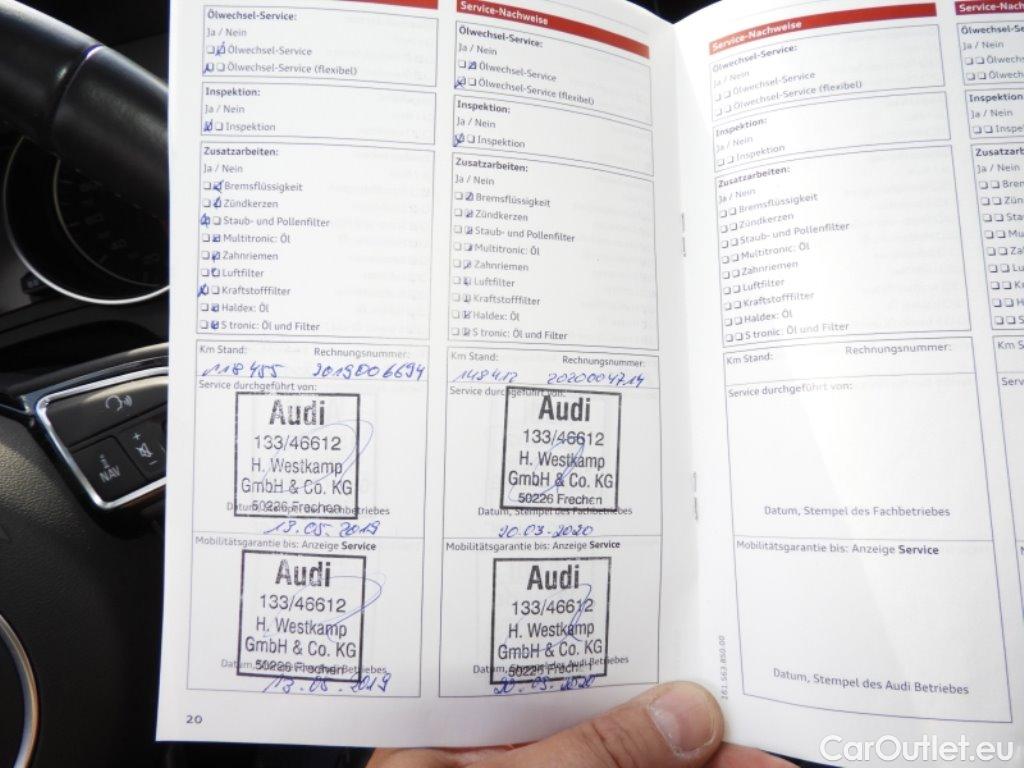 Ölwechsel-Service:
Ja / Nein
Ölwechsel-Service
Ölwechsel-Service (flexibel)
Inspektion:
Ja / Nein
Inspektion
Zusatzarbeiten:
Ja / Nein
Bremsflüssigkeit
Zündkerzen
Staub- und Pollenfilter
Multitronic: Öl
Zahnriemen
Luftfilter
Kraftstofffilter
Haldex: Öl
S tronic: Öl und Filter
Km Stand: Rechnungsnummer:
118455 2019006694
Service durchgeführt von:
Audi
133/46612
H. Westkamp
GmbH & Co. KG
50226 Frechen
Datum, Stempel des Fachbetriebes
13.05.2019
Mobilitätsgarantie bis: Anzeige Service
Audi
133/46612
H. Westkamp
GmbH & Co. KG
50226 Frechen
Datum, Stempel des Audi Betriebes
13.05.2019
20
Service-Nachweise
Ölwechsel-Service:
Ja / Nein
Ölwechsel-Service
Ölwechsel-Service (flexibel)
Inspektion:
Ja / Nein
Inspektion
Zusatzarbeiten:
Ja / Nein
Bremsflüssigkeit
Zündkerzen
Staub- und Pollenfilter
Multitronic: Öl
Zahnriemen
Luftfilter
Kraftstofffilter
Haldex: Öl
S tronic: Öl und Filter
Km Stand: Rechnungsnummer:
148412 2020004714
Service durchgeführt von:
Audi
133/46612
H. Westkamp
GmbH & Co. KG
50226 Frechen
Datum, Stempel des Fachbetriebes
20.03.2020
Mobilitätsgarantie bis: Anzeige Service
Audi
133/46612
H. Westkamp
GmbH & Co. KG
50226 Frechen
Datum, Stempel des Audi Betriebes
20.03.2020
Service-Nachweise
Ölwechsel-Service:
Ja / Nein
Ölwechsel-Service
Ölwechsel-Service (flexibel)
Inspektion:
Ja / Nein
Inspektion
Zusatzarbeiten:
Ja / Nein
Bremsflüssigkeit
Zündkerzen
Staub- und Pollenfilter
Multitronic: Öl
Zahnriemen
Luftfilter
Kraftstofffilter
Haldex: Öl
S tronic: Öl und Filter
Km Stand: Rechnungsnummer:
Service durchgeführt von:
Datum, Stempel des Fachbetriebes
Mobilitätsgarantie bis: Anzeige Service
Datum, Stempel des Audi Betriebes
161.563.850.00
Service-Nach
Ölwechsel-Se
Ja / Nein
Ölwechs
Ölwech
Inspektion
Ja / Nein
Ins
Zusatzarb
Ja / Nein
Bre
Zün
Sta
Mu
Za
Lu
Kr
Ha
S
Km S
Serv
NAV
CarOutlet.eu